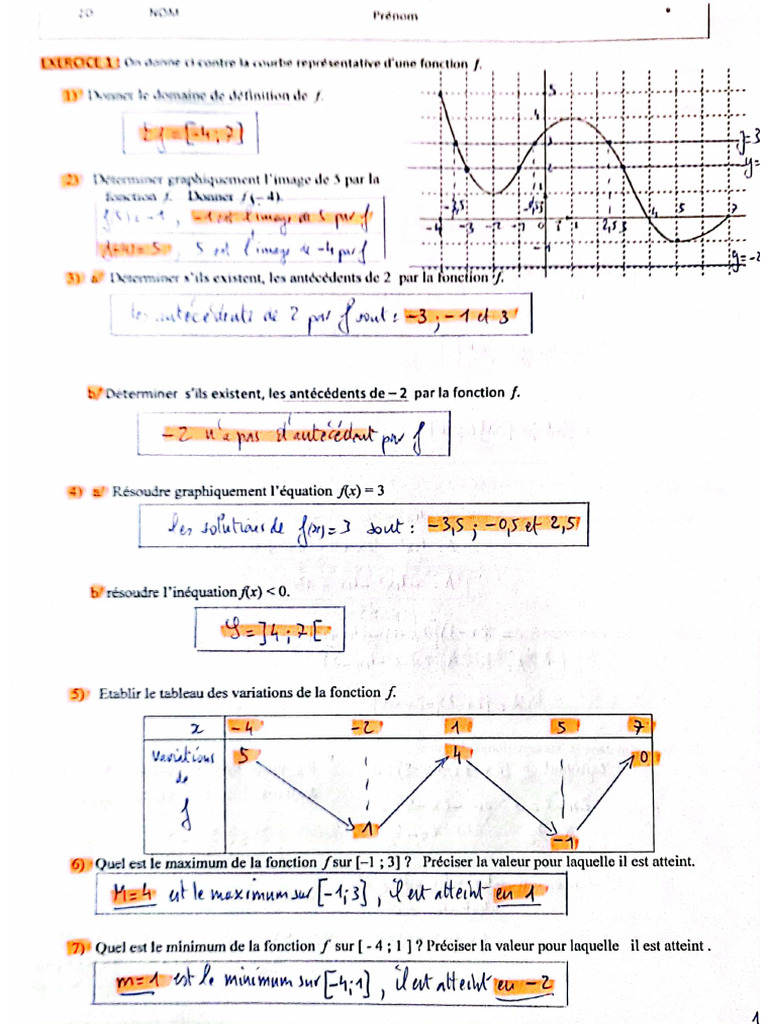 2D NOM Prénom
EXERCICE 1 : On donne ci contre la courbe représentative d'une fonction f.
1) Donner le domaine de définition de f.
Df = [-4 ; 7]
2) Déterminer graphiquement l'image de 5 par la
fonction f. Donner f(-4).
f(5) = -1, -1 est l'image de 5 par f
f(-4) = 5, 5 est l'image de -4 par f
5
4
3
y=3
2
y=
1
-4 -3,5 -3 -2 -1 -0,5 1 2,5 3 4 5 7
-1
y=-2
3) a/ Déterminer s'ils existent, les antécédents de 2 par la fonction f.
les antécédents de 2 par f sont : -3 ; -1 et 3
b/ Déterminer s'ils existent, les antécédents de – 2 par la fonction f.
-2 n'a pas d'antécédent par f
4) a/ Résoudre graphiquement l'équation f(x) = 3
les solutions de f(x)=3 sont : -3,5 ; -0,5 et 2,5
b/ résoudre l'inéquation f(x) < 0.
S = ]4 ; 7[
5) Etablir le tableau des variations de la fonction f.
x -4 -2 1 5 7
variations de f 5 1 4 -1 0
6) Quel est le maximum de la fonction f sur [–1 ; 3] ? Préciser la valeur pour laquelle il est atteint.
M=4 est le maximum sur [-1;3], il est atteint en 1
7) Quel est le minimum de la fonction f sur [ - 4 ; 1 ] ? Préciser la valeur pour laquelle il est atteint .
m=1 est le minimum sur [-4;1], il est atteint en -2
1